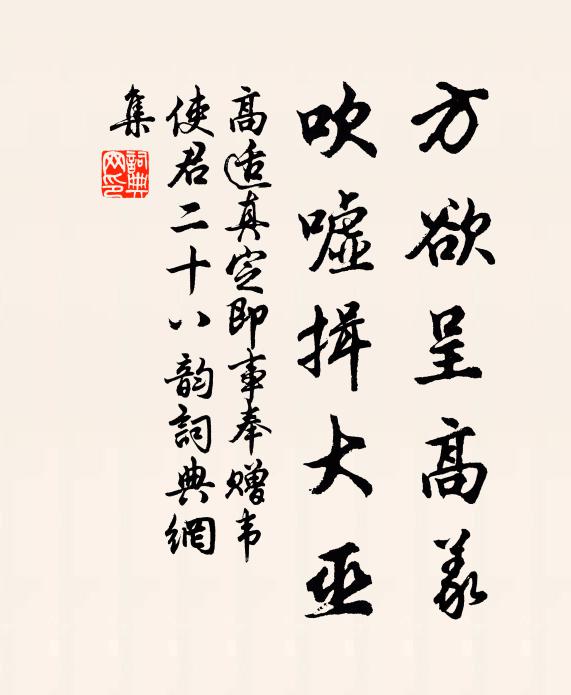 方欲呈高義
吹嘘揖大巫
高适真定即事奉赠韦
使君二十八韵詞典網
集
詞典網印